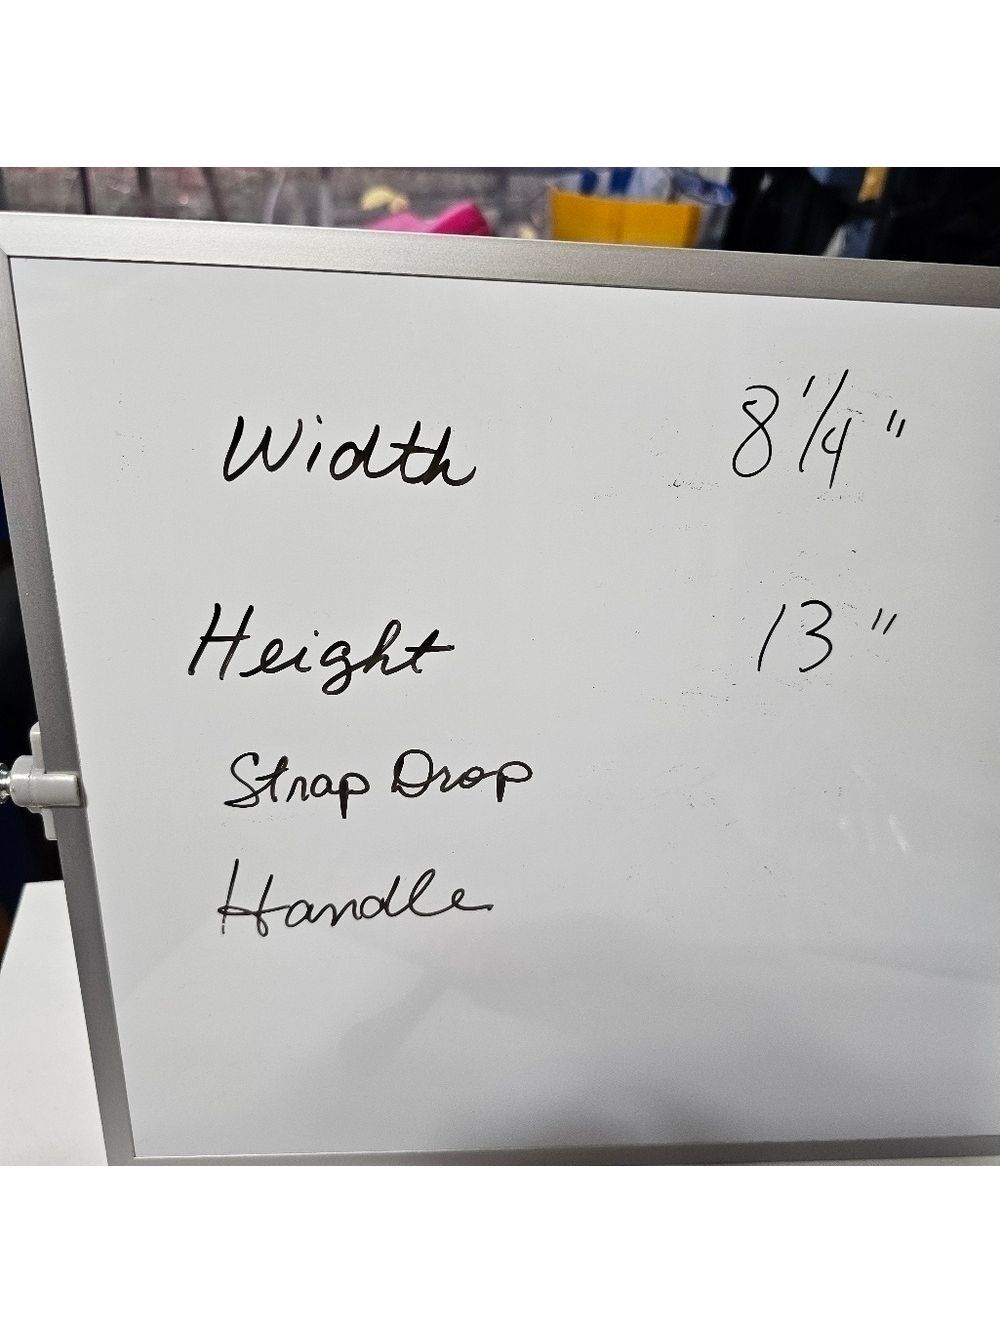 Width 8 1/4"
Height 13"
Strap Drop
Handle